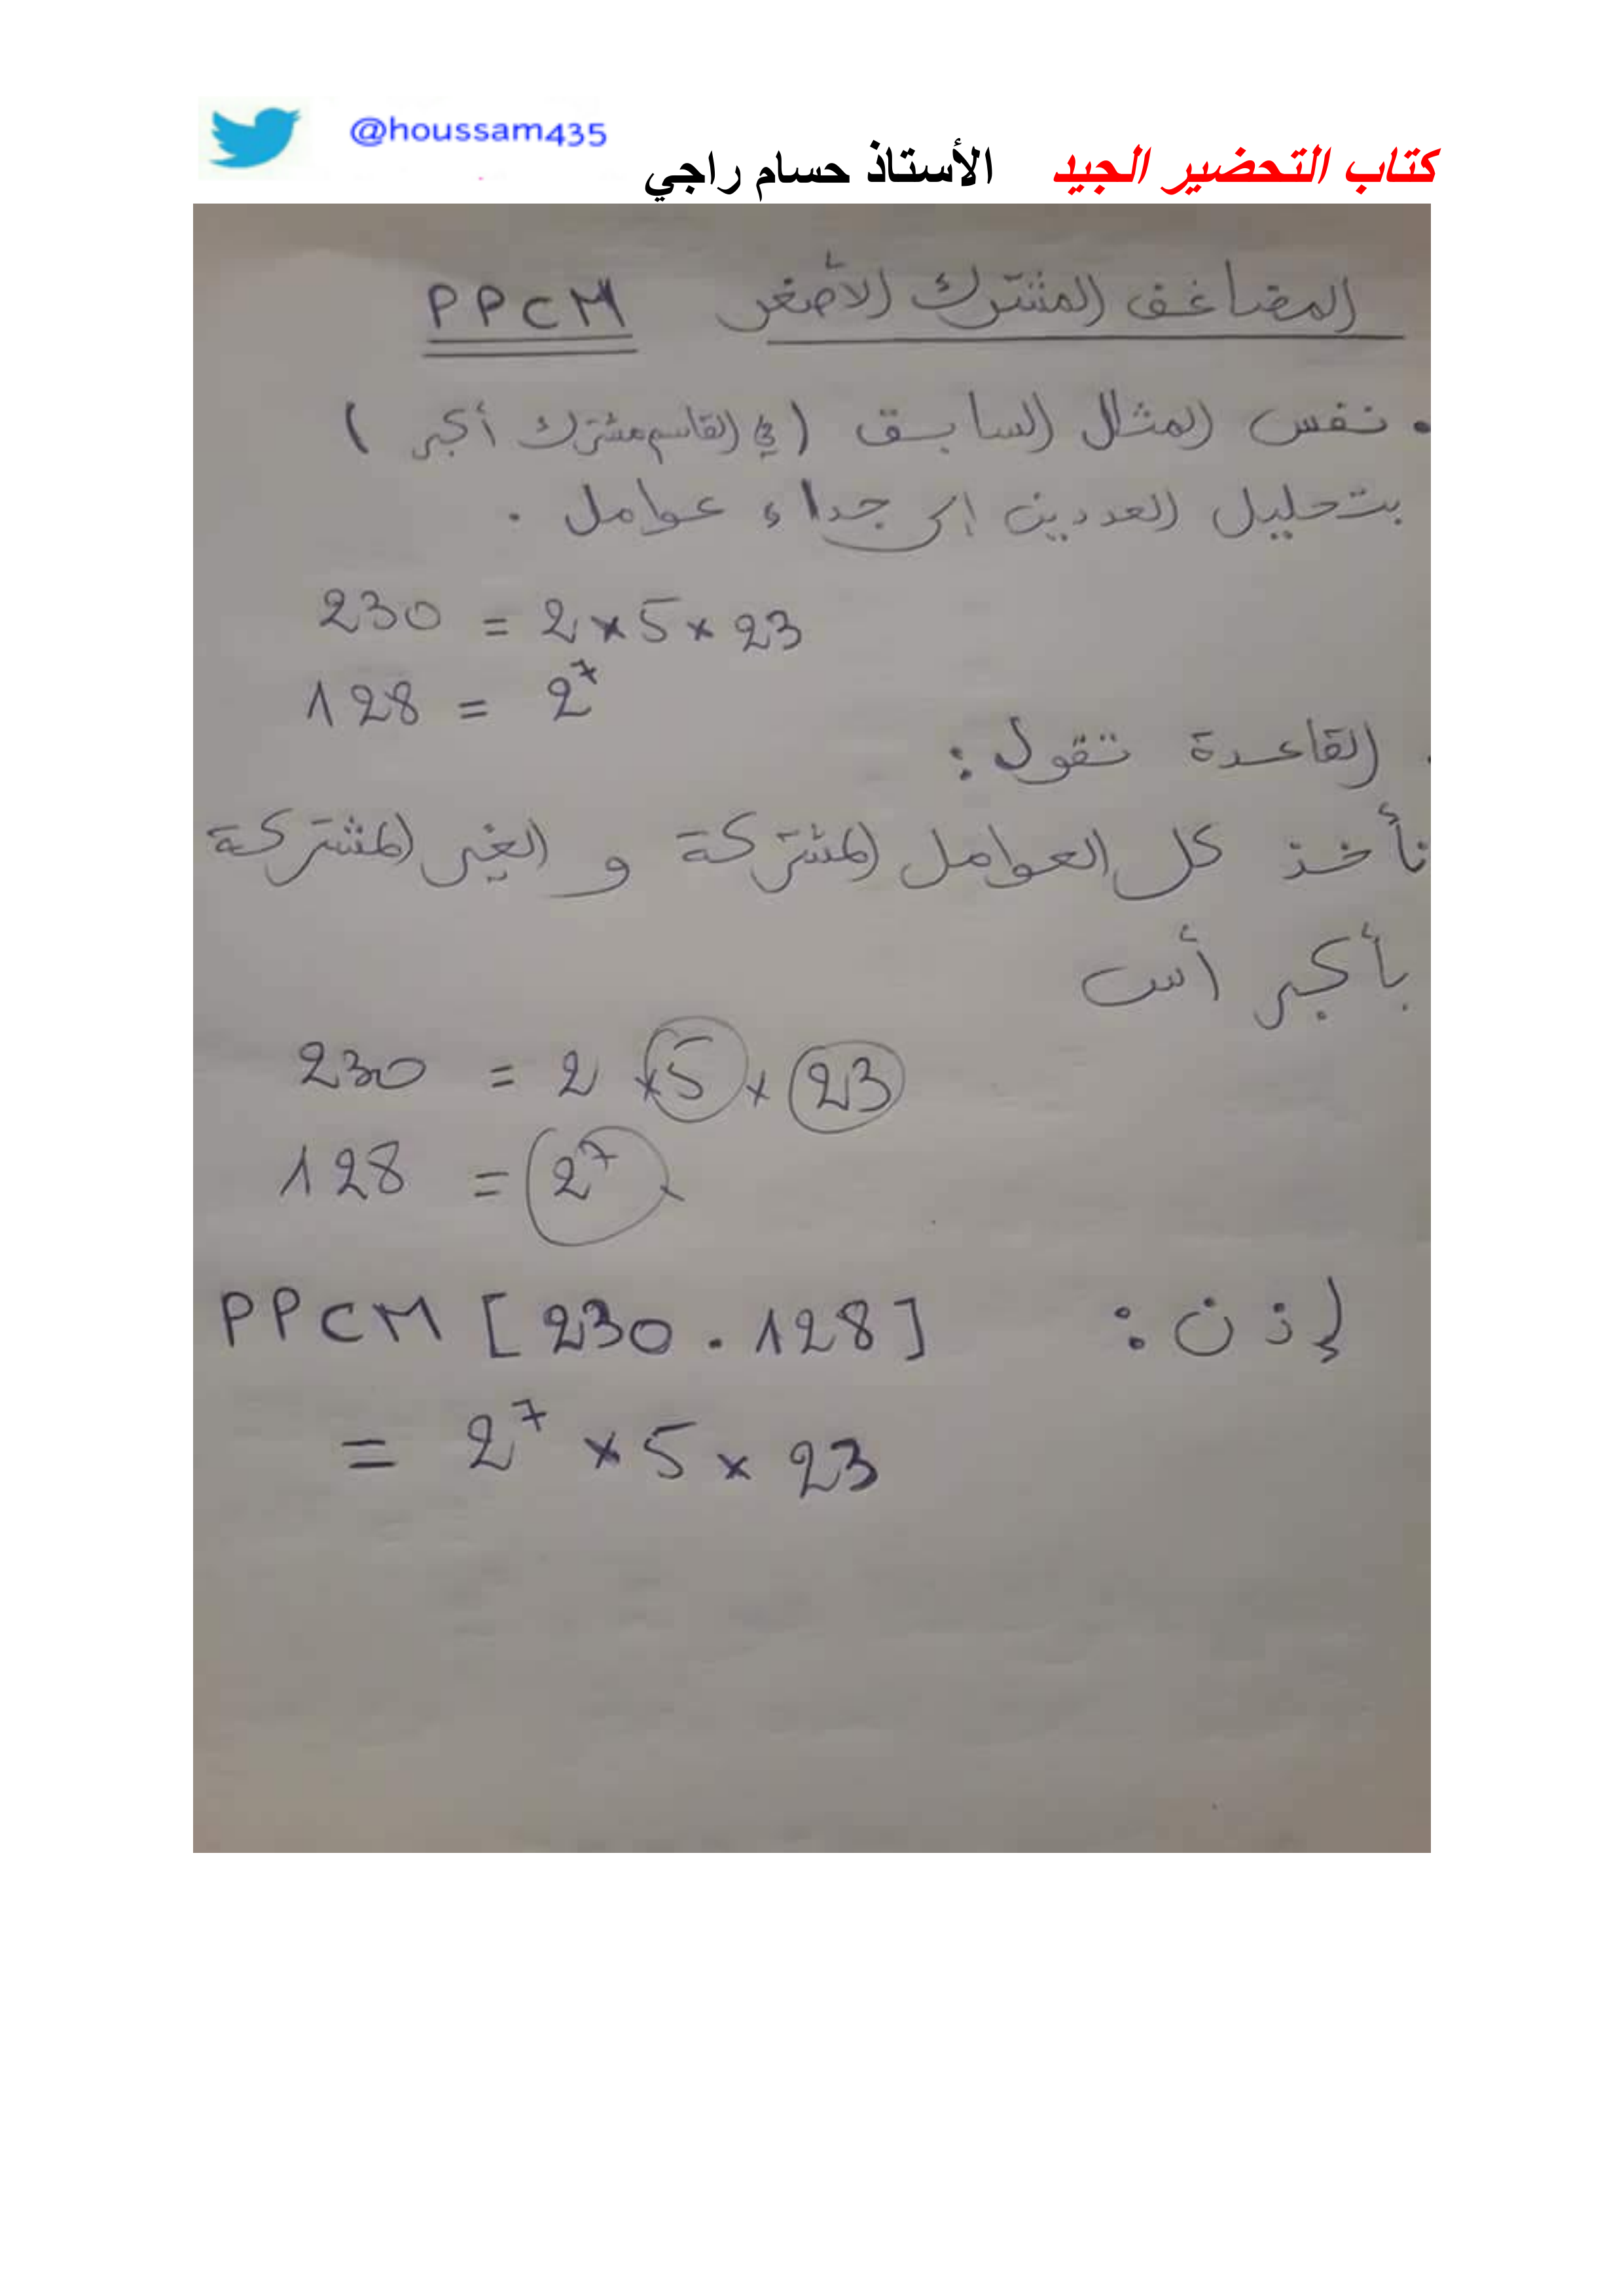 @houssam435
كتاب التحضير الجيد الأستاذ حسام راجي
المضاعف المشترك الأصغر PPCM
• نفس المثال السابق (في القاسم مشترك أكبر)
بتحليل العددين إلى جداء عوامل .
230 = 2 × 5 × 23
128 = 2⁷
. القاعدة تقول :
نأخذ كل العوامل المشتركة و الغير المشتركة
بأكبر أس
230 = 2 × 5 × 23
128 = 2⁷
إذن : PPCM [230 . 128]
= 2⁷ × 5 × 23